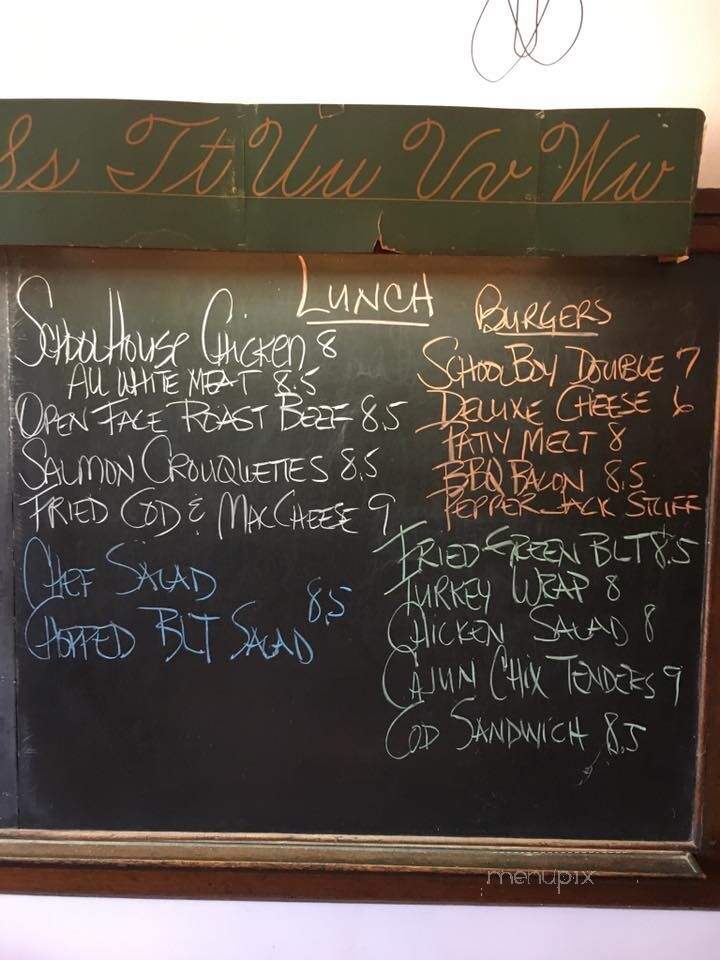 Ss Tt Uu Vv Ww
LUNCH
SCHOOLHOUSE CHICKEN 8
ALL WHITE MEAT 8.5
OPEN FACE ROAST BEEF 8.5
SALMON CROUQUETTES 8.5
FRIED COD & MAC CHEESE 9
CHEF SALAD
8.5
CHOPPED BLT SALAD
BURGERS
SCHOOL BOY DOUBLE 7
DELUXE CHEESE 6
PATTY MELT 8
BBQ BACON 8.5
PEPPER JACK STUFF
FRIED GREEN BLT 8.5
TURKEY WRAP 8
CHICKEN SALAD 8
CAJUN CHIX TENDERS 9
COD SANDWICH 8.5
menupix